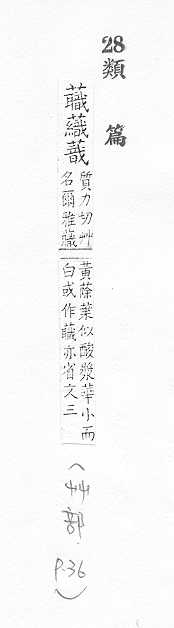 28類篇
蘵蘵蕺質力切艸名爾雅蘵
黃蒢葉似酸漿華小而白或作蘵亦省文三
(艸部. P.36)